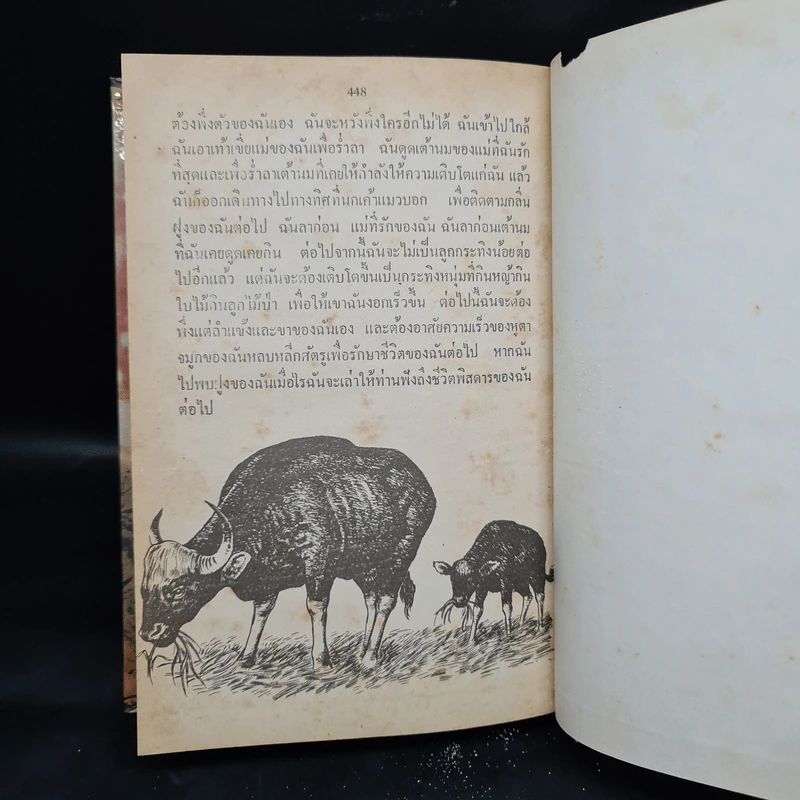 448
ต้องพึ่งตัวของฉันเอง ฉันจะหวังพึ่งใครอีกไม่ได้ ฉันเข้าไปใกล้
ฉันเอาเท้าเขี่ยแม่ของฉันเพื่อร่ำลา ฉันดูดเต้านมของแม่ที่ฉันรัก
ที่สุดและเพื่อร่ำลาเต้านมที่เคยให้กำลังให้ความเติบโตแก่ฉัน แล้ว
ฉันก็ออกเดินทางไปทางทิศที่นกเค้าแมวบอก เพื่อติดตามกลิ่น
ฝูงของฉันต่อไป ฉันลาก่อน แม่ที่รักของฉัน ฉันลาก่อนเต้านม
ที่ฉันเคยดูดเคยกิน ต่อไปจากนี้ฉันจะไม่เป็นลูกกระทิงน้อยต่อ
ไปอีกแล้ว แต่ฉันจะต้องเติบโตขึ้นเป็นกระทิงหนุ่มที่กินหญ้ากิน
ใบไม้กินลูกไม้ป่า เพื่อให้เขาฉันงอกเร็วขึ้น ต่อไปนี้ฉันจะต้อง
พึ่งแต่ลำแข้งและขาของฉันเอง และต้องอาศัยความเร็วของหูตา
จมูกของฉันหลบหลีกศัตรูเพื่อรักษาชีวิตของฉันต่อไป หากฉัน
ไปพบฝูงของฉันเมื่อไรฉันจะเล่าให้ท่านฟังถึงชีวิตพิสดารของฉัน
ต่อไป